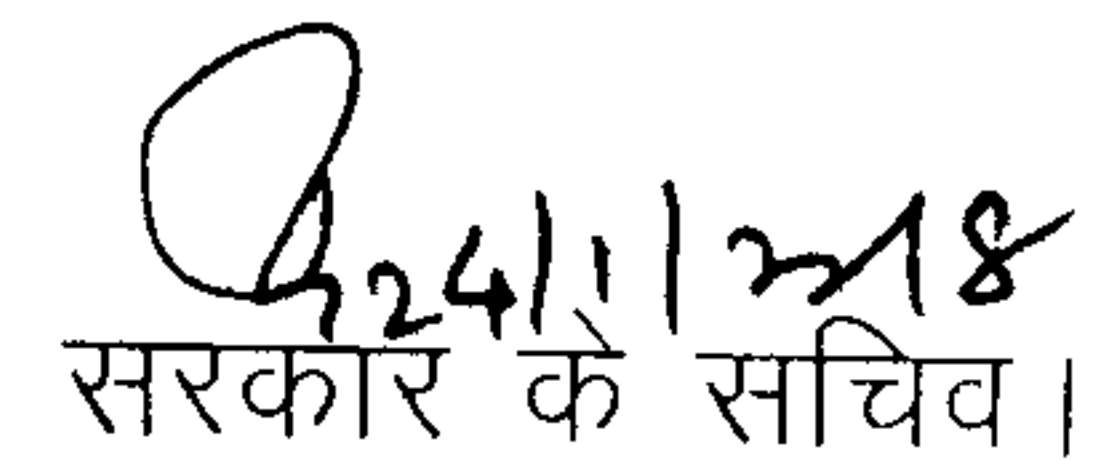 24/1/2018
सरकार के सचिव।